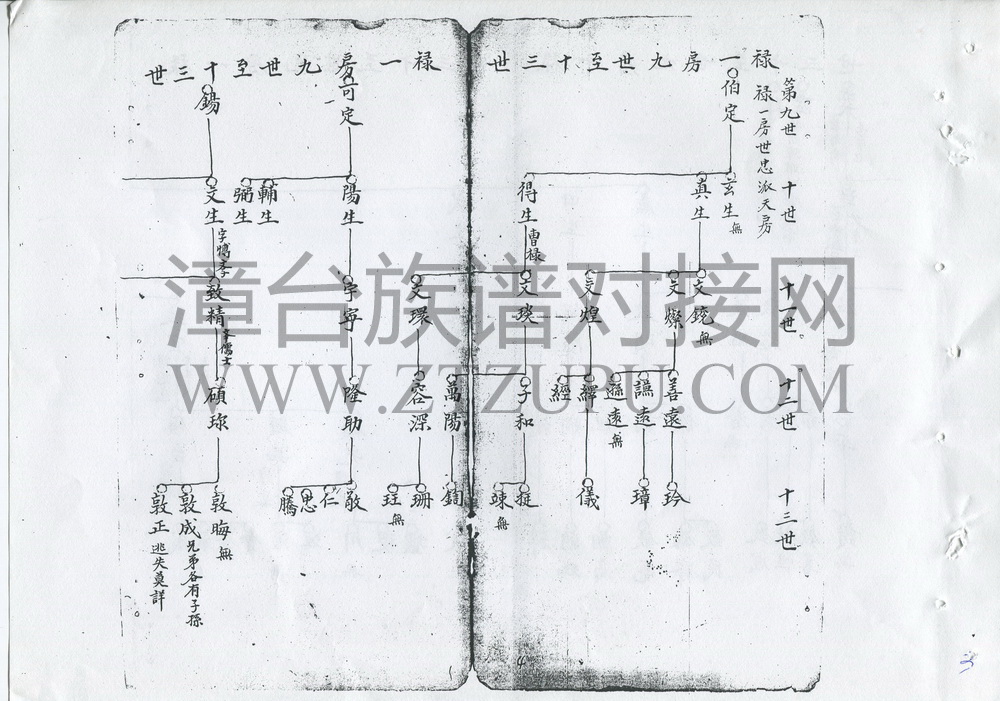 禄一房九世至十三世
第九世
十世
十一世
十二世
十三世
禄一房世忠派天房
伯定
玄生 無
真生
得生 曹禄
文鏡 無
文燦
文煌
文瑛
文環
善遠
讌遠
遜遠 無
繹
經
子和
萬陽
容深
玲
璋
儀
挺
竦 無
鈞
珊
玨 無
禄一房九世至十三世
可定
陽生
輔生
弼生
宇寧
隆助
敬
仁
思
騰
錫
文生
致精
碩珎
敦晦 無
敦成 兄弟各有子孫
敦正 逃失莫詳
漳台族谱对接网
WWW.ZTZUPU.COM
4